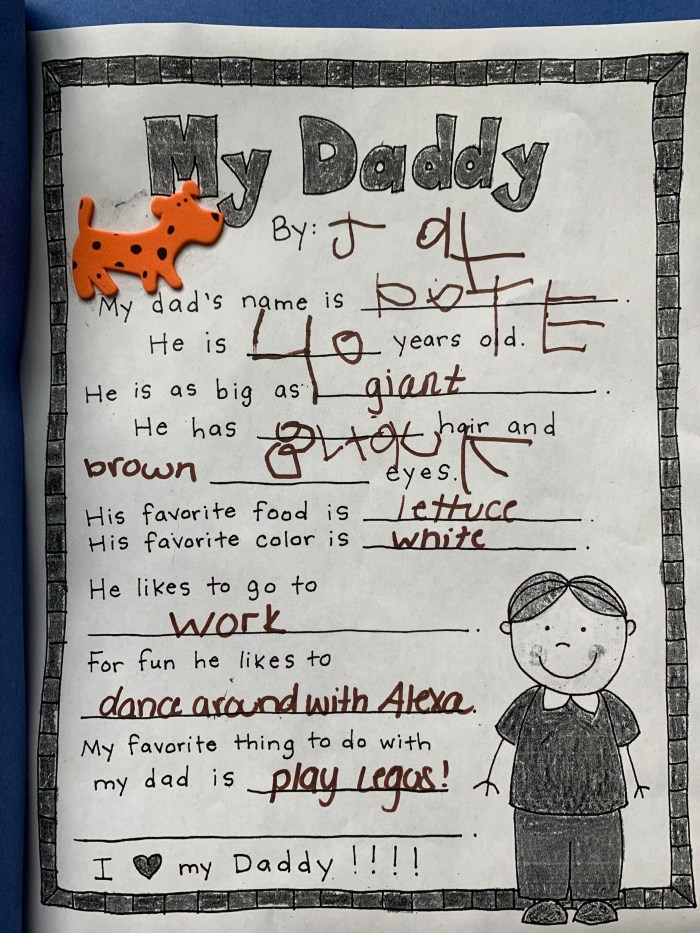 My Daddy
By: J
My dad's name is .
He is 40 years old.
He is as big as giant .
He has hair and
brown eyes.
His favorite food is lettuce .
His favorite color is white .
He likes to go to
work .
For fun he likes to
dance around with Alexa.
My favorite thing to do with
my dad is play Legos!
.
I ♥ my Daddy !!!!